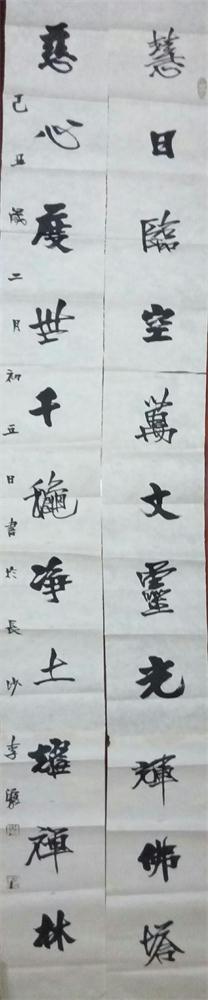 慧日臨空萬文靈光輝佛塔
慈心度世千龝净土耀禪林
己丑歲二月初五日書於長沙